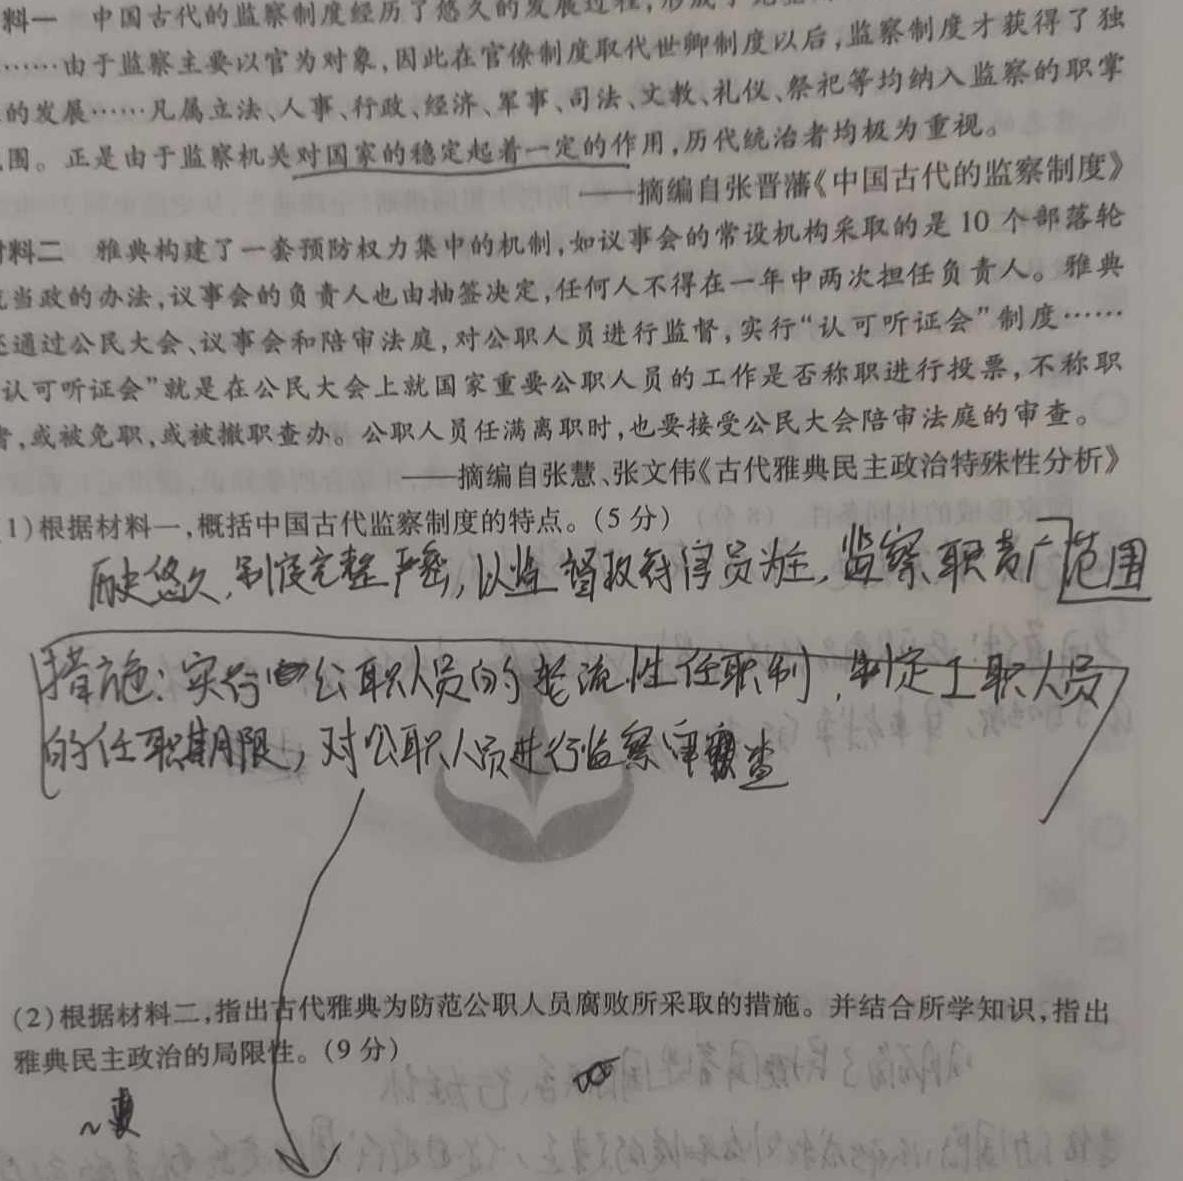 料一 中国古代的监察制度经历了悠久的发展过程,形成了
……由于监察主要以官为对象,因此在官僚制度取代世卿制度以后,监察制度才获得了独
的发展……凡属立法、人事、行政、经济、军事、司法、文教、礼仪、祭祀等均纳入监察的职掌
围。正是由于监察机关对国家的稳定起着一定的作用,历代统治者均极为重视。
——摘编自张晋藩《中国古代的监察制度》
材料二 雅典构建了一套预防权力集中的机制,如议事会的常设机构采取的是10个部落轮
流当政的办法,议事会的负责人也由抽签决定,任何人不得在一年中两次担任负责人。雅典
还通过公民大会、议事会和陪审法庭,对公职人员进行监督,实行“认可听证会”制度……
认可听证会”就是在公民大会上就国家重要公职人员的工作是否称职进行投票,不称职
者,或被免职,或被撤职查办。公职人员任满离职时,也要接受公民大会陪审法庭的审查。
——摘编自张慧、张文伟《古代雅典民主政治特殊性分析》
1)根据材料一,概括中国古代监察制度的特点。(5分)
历史悠久,制度完整严密,以监督政府官员为主,监察职责广范围
措施:实行公职人员的轮流性任职制,制定工职人员
的任职期限,对公职人员进行监察审查
(2)根据材料二,指出古代雅典为防范公职人员腐败所采取的措施。并结合所学知识,指出
雅典民主政治的局限性。(9分)